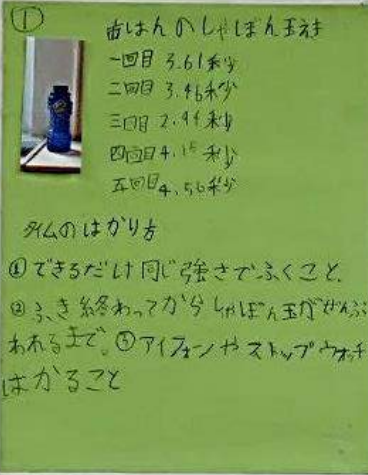 ①
市はんのしゃぼん玉えき
一回目 3.61秒
二回目 3.46秒
三回目 2.94秒
四回目 4.15秒
五回目 4.56秒
タイムのはかり方
①できるだけ同じ強さでふくこと、
②ふき終わってからしゃぼん玉がぜんぶ
われるまで。③アイフォーンやストップウォッチ
はかること